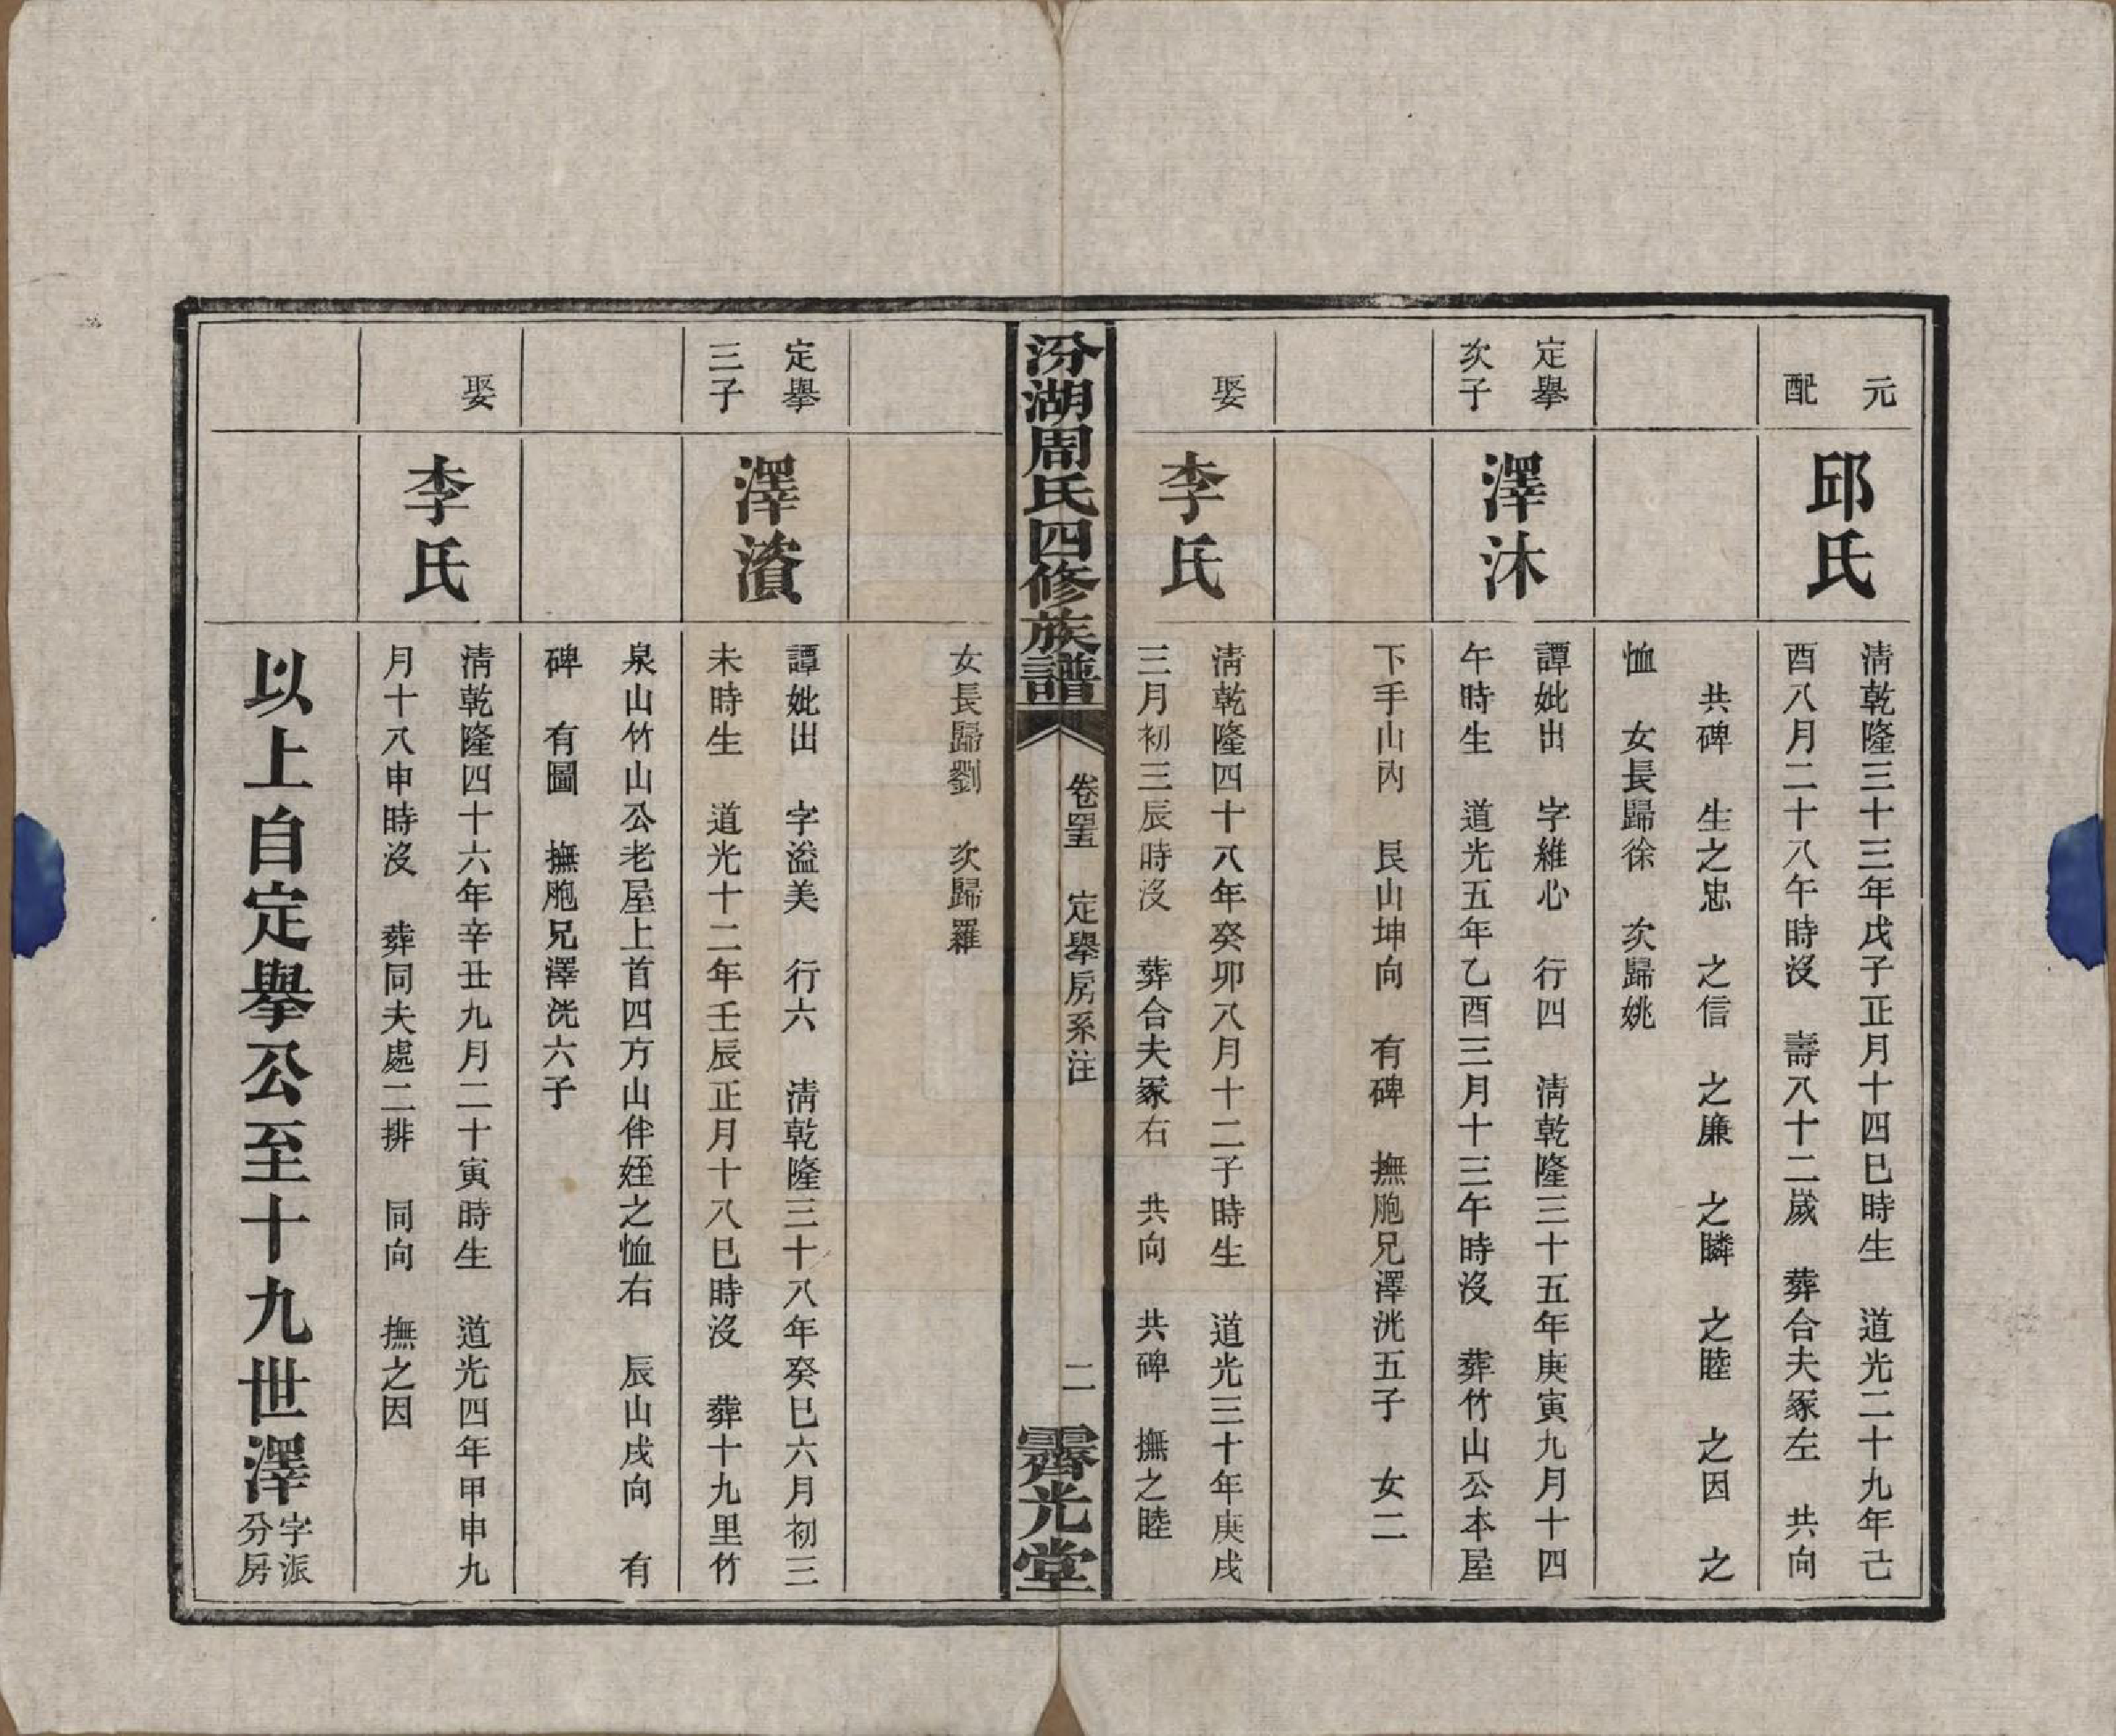 元
配
邱氏
清乾隆三十三年戊子正月十四巳時生　道光二十九年己
酉八月二十八午時沒　壽八十二歲　葬合夫冢左　共向
共碑　生之忠　之信　之廉　之瞵　之睦　之因　之
恤　女長歸徐　次歸姚
定擧
次子
澤沐
譚妣出　字維心　行四　清乾隆三十五年庚寅九月十四
午時生　道光五年乙酉三月十三午時沒　葬竹山公本屋
下手山內　艮山坤向　有碑　撫胞兄澤洸五子　女二
娶
李氏
清乾隆四十八年癸卯八月十二子時生　道光三十年庚戌
三月初三辰時沒　葬合夫冢右　共向　共碑　撫之睦
汾湖周氏四修族譜
卷四五　定擧房系注
二
霽光堂
女長歸劉　次歸羅
定擧
三子
澤濱
譚妣出　字溢美　行六　清乾隆三十八年癸巳六月初三
未時生　道光十二年壬辰正月十八巳時沒　葬十九里竹
泉山竹山公老屋上首四方山伴姪之恤右　辰山戌向　有
碑　有圖　撫胞兄澤洸六子
娶
李氏
清乾隆四十六年辛丑九月二十寅時生　道光四年甲申九
月十八申時沒　葬同夫處二排　同向　撫之因
以上自定擧公至十九世澤字派分房